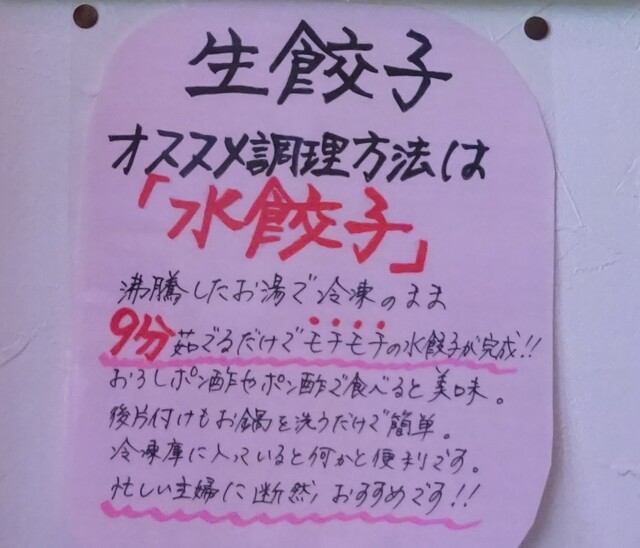 生餃子
オススメ調理方法は
「水餃子」
沸騰したお湯で冷凍のまま
9分茹でるだけでモチモチの水餃子が完成!!
おろしポン酢やポン酢で食べると美味。
後片付けもお鍋を洗うだけで簡単。
冷凍庫に入っていると何かと便利です。
忙しい主婦に断然、おすすめです!!